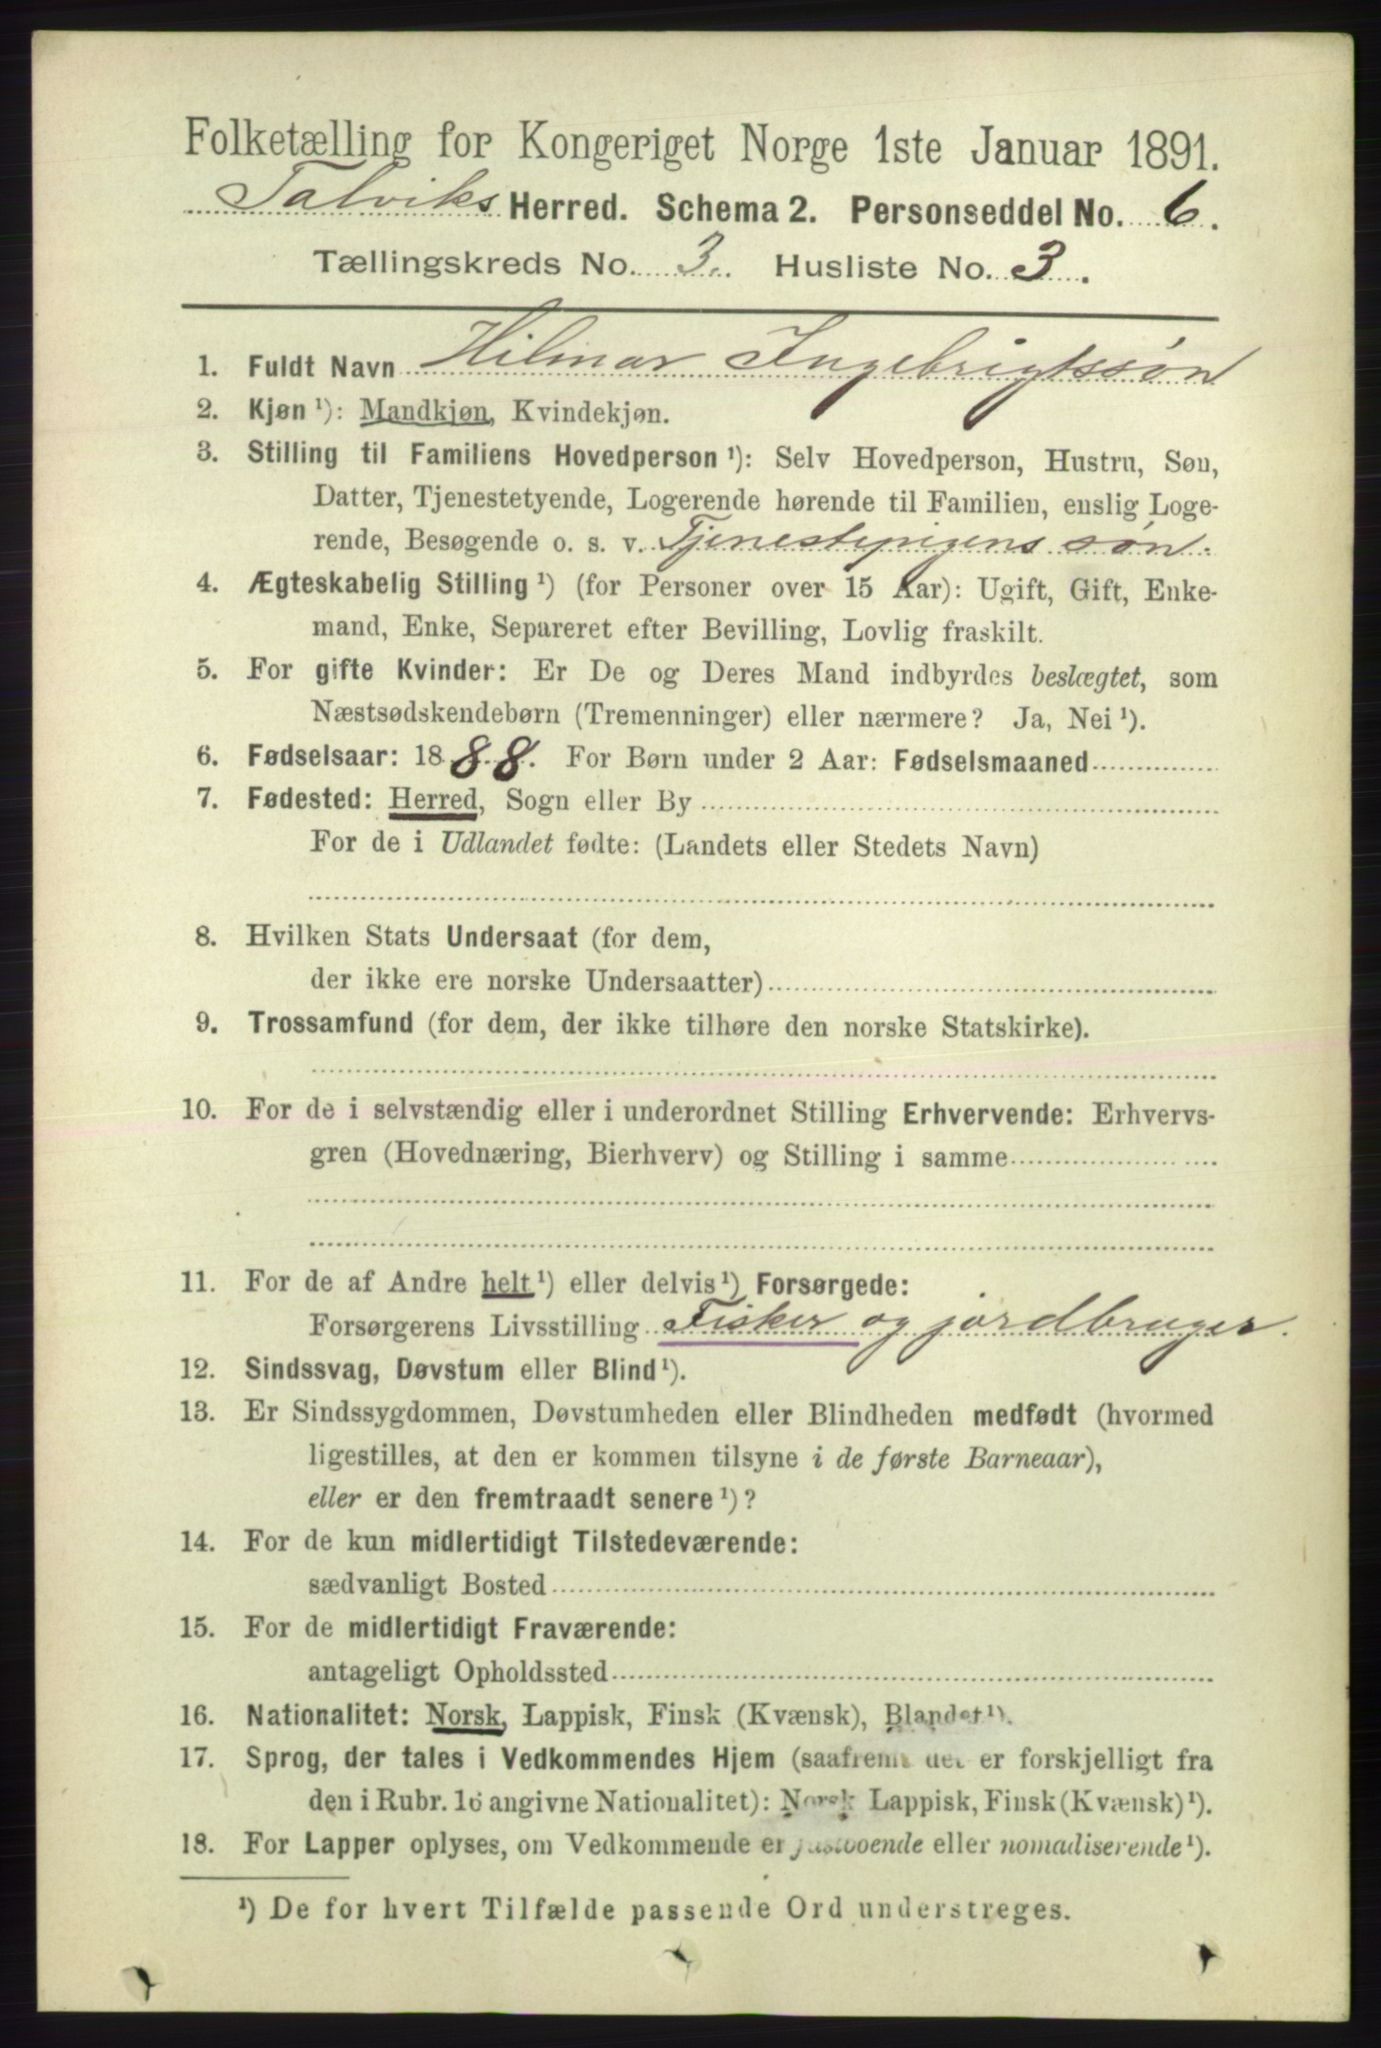 Folketælling for Kongeriget Norge 1ste Januar 1891.
Talviks Herred. Schema 2. Personseddel No. 6.
Tællingskreds No. 3. Husliste No. 3.
1. Fuldt Navn Hilmar Ingebrigtssøn
2. Kjøn ¹): Mandkjøn, Kvindekjøn.
3. Stilling til Familiens Hovedperson ¹): Selv Hovedperson, Hustru, Søn,
Datter, Tjenestetyende, Logerende hørende til Familien, enslig Loge-
rende, Besøgende o. s. v. Tjenestepigens søn.
4. Ægteskabelig Stilling ¹) (for Personer over 15 Aar): Ugift, Gift, Enke-
mand, Enke, Separeret efter Bevilling, Lovlig fraskilt.
5. For gifte Kvinder: Er De og Deres Mand indbyrdes beslægtet, som
Næstsødskendebørn (Tremenninger) eller nærmere? Ja, Nei ¹).
6. Fødselsaar: 1888. For Børn under 2 Aar: Fødselsmaaned
7. Fødested: Herred, Sogn eller By
For de i Udlandet fødte: (Landets eller Stedets Navn)
8. Hvilken Stats Undersaat (for dem,
der ikke ere norske Undersaatter)
9. Trossamfund (for dem, der ikke tilhøre den norske Statskirke).
10. For de i selvstændig eller i underordnet Stilling Erhvervende: Erhvervs-
gren (Hovednæring, Bierhverv) og Stilling i samme
11. For de af Andre helt ¹) eller delvis ¹) Forsørgede:
Forsørgerens Livsstilling Fisker og jordbruger.
12. Sindssvag, Døvstum eller Blind ¹).
13. Er Sindssygdommen, Døvstumheden eller Blindheden medfødt (hvormed
ligestilles, at den er kommen tilsyne i de første Barneaar),
eller er den fremtraadt senere ¹)?
14. For de kun midlertidigt Tilstedeværende:
sædvanligt Bosted
15. For de midlertidigt Fraværende:
antageligt Opholdssted
16. Nationalitet: Norsk, Lappisk, Finsk (Kvænsk), Blandet ¹).
17. Sprog, der tales i Vedkommendes Hjem (saafremt det er forskjelligt fra
den i Rubr. 16 angivne Nationalitet): Norsk, Lappisk, Finsk (Kvænsk) ¹).
18. For Lapper oplyses, om Vedkommende er fastboende eller nomadiserende ¹).
¹) De for hvert Tilfælde passende Ord understreges.